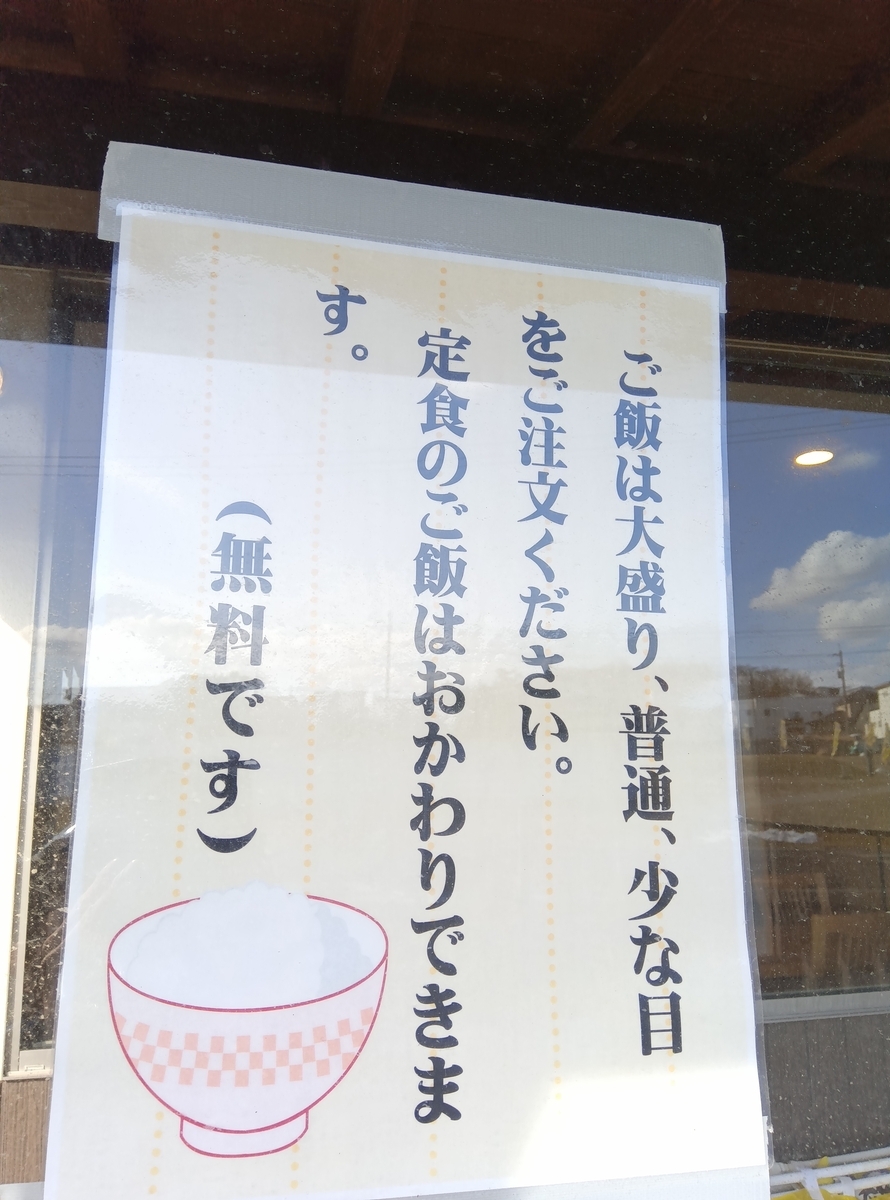 ご飯は大盛り、普通、少な目
をご注文ください。
定食のご飯はおかわりできま
す。
（無料です）